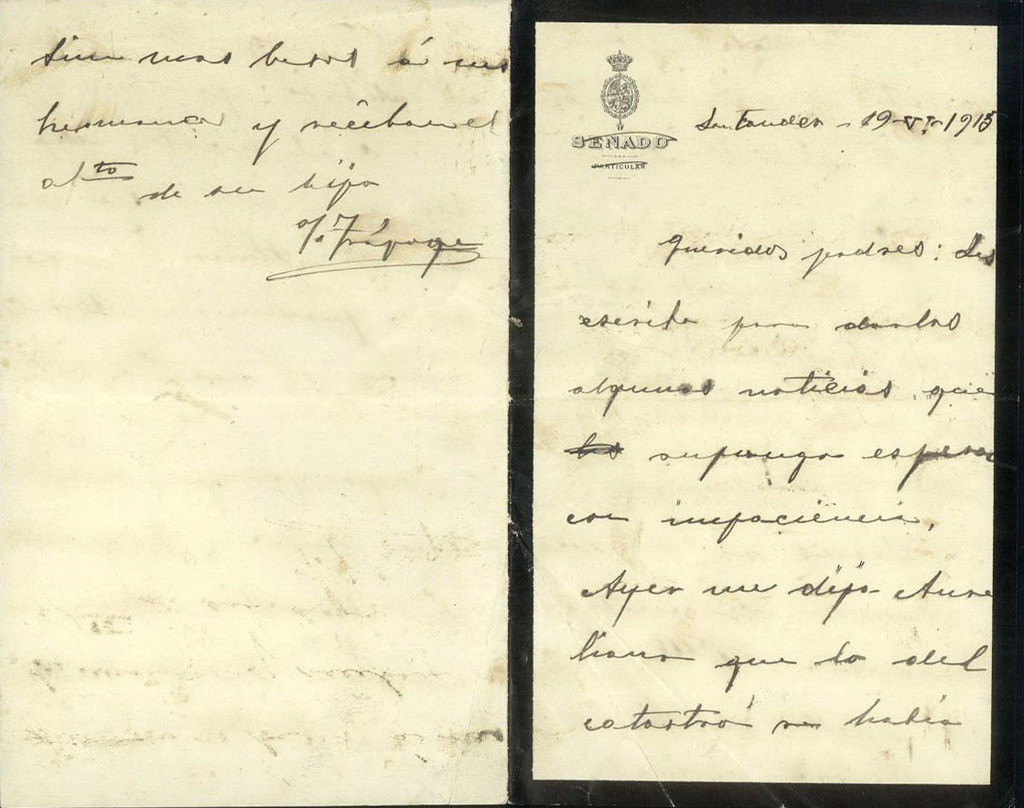 Sin mas besos á mis
hermanas y reciban el
afto de su hijo
SENADO
PARTICULAR
Santander - 19-VI-1915
Queridos padres: Les
escribo para darles
algunas noticias que
supongo esperan
con impaciencia.
Ayer me dijo Aure
liano que lo del
catastro se había